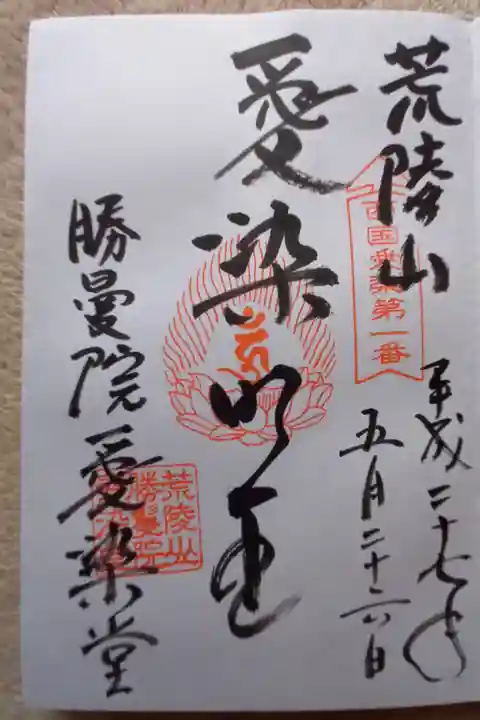 荒陵山
平成二十七年
五月二十六日
西国愛染第一番
愛染明王
勝曼院愛染堂
荒陵山
勝曼院